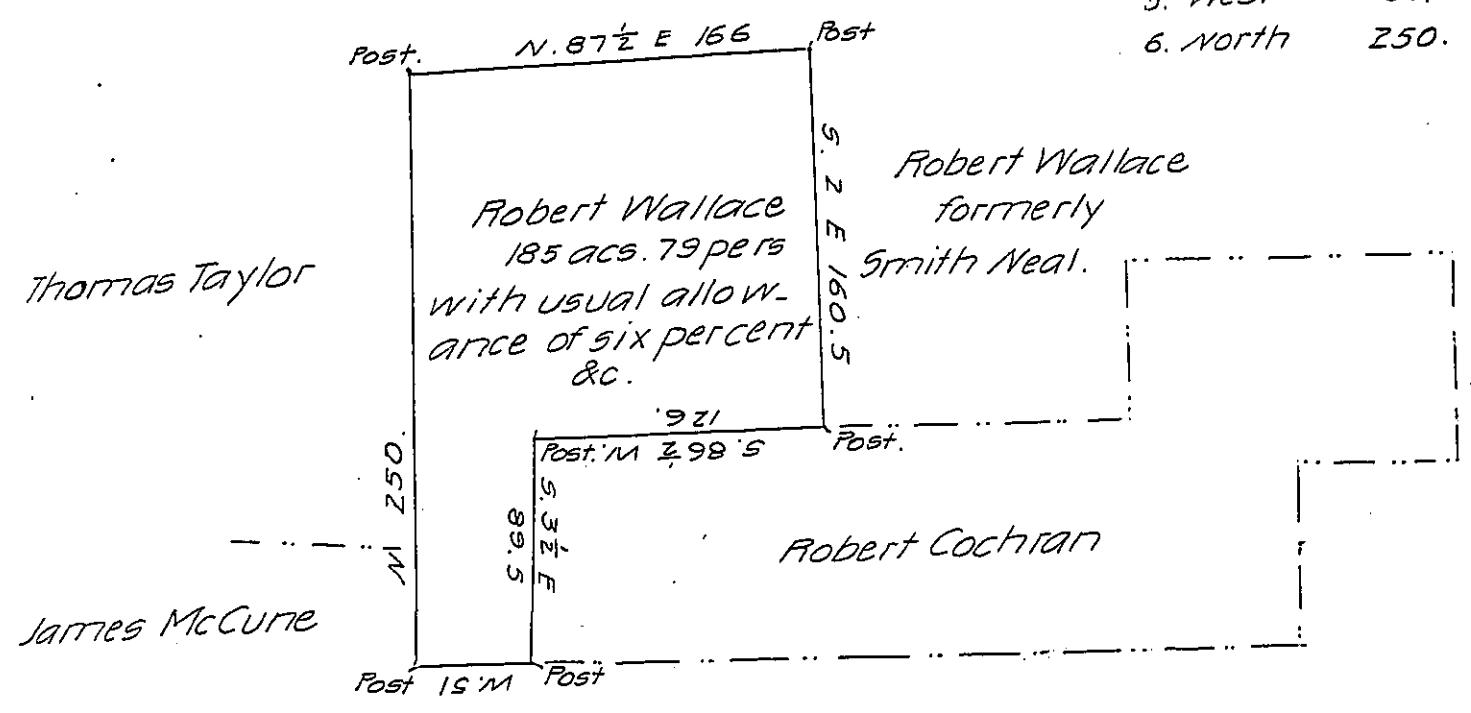 5. West
6. North 250.
Post. N. 87½ E 166 Post
S. 2 E 160.5
Robert Wallace
formerly
Smith Neal.
Robert Wallace
185 acs. 79 pers
with usual allow-
ance of six percent
&c.
Thomas Taylor
126.
Post. S. 86½ W. Post.
N 250.
S. 3½ E
89.5
Robert Cochran
James McCune
Post W. 51 Post